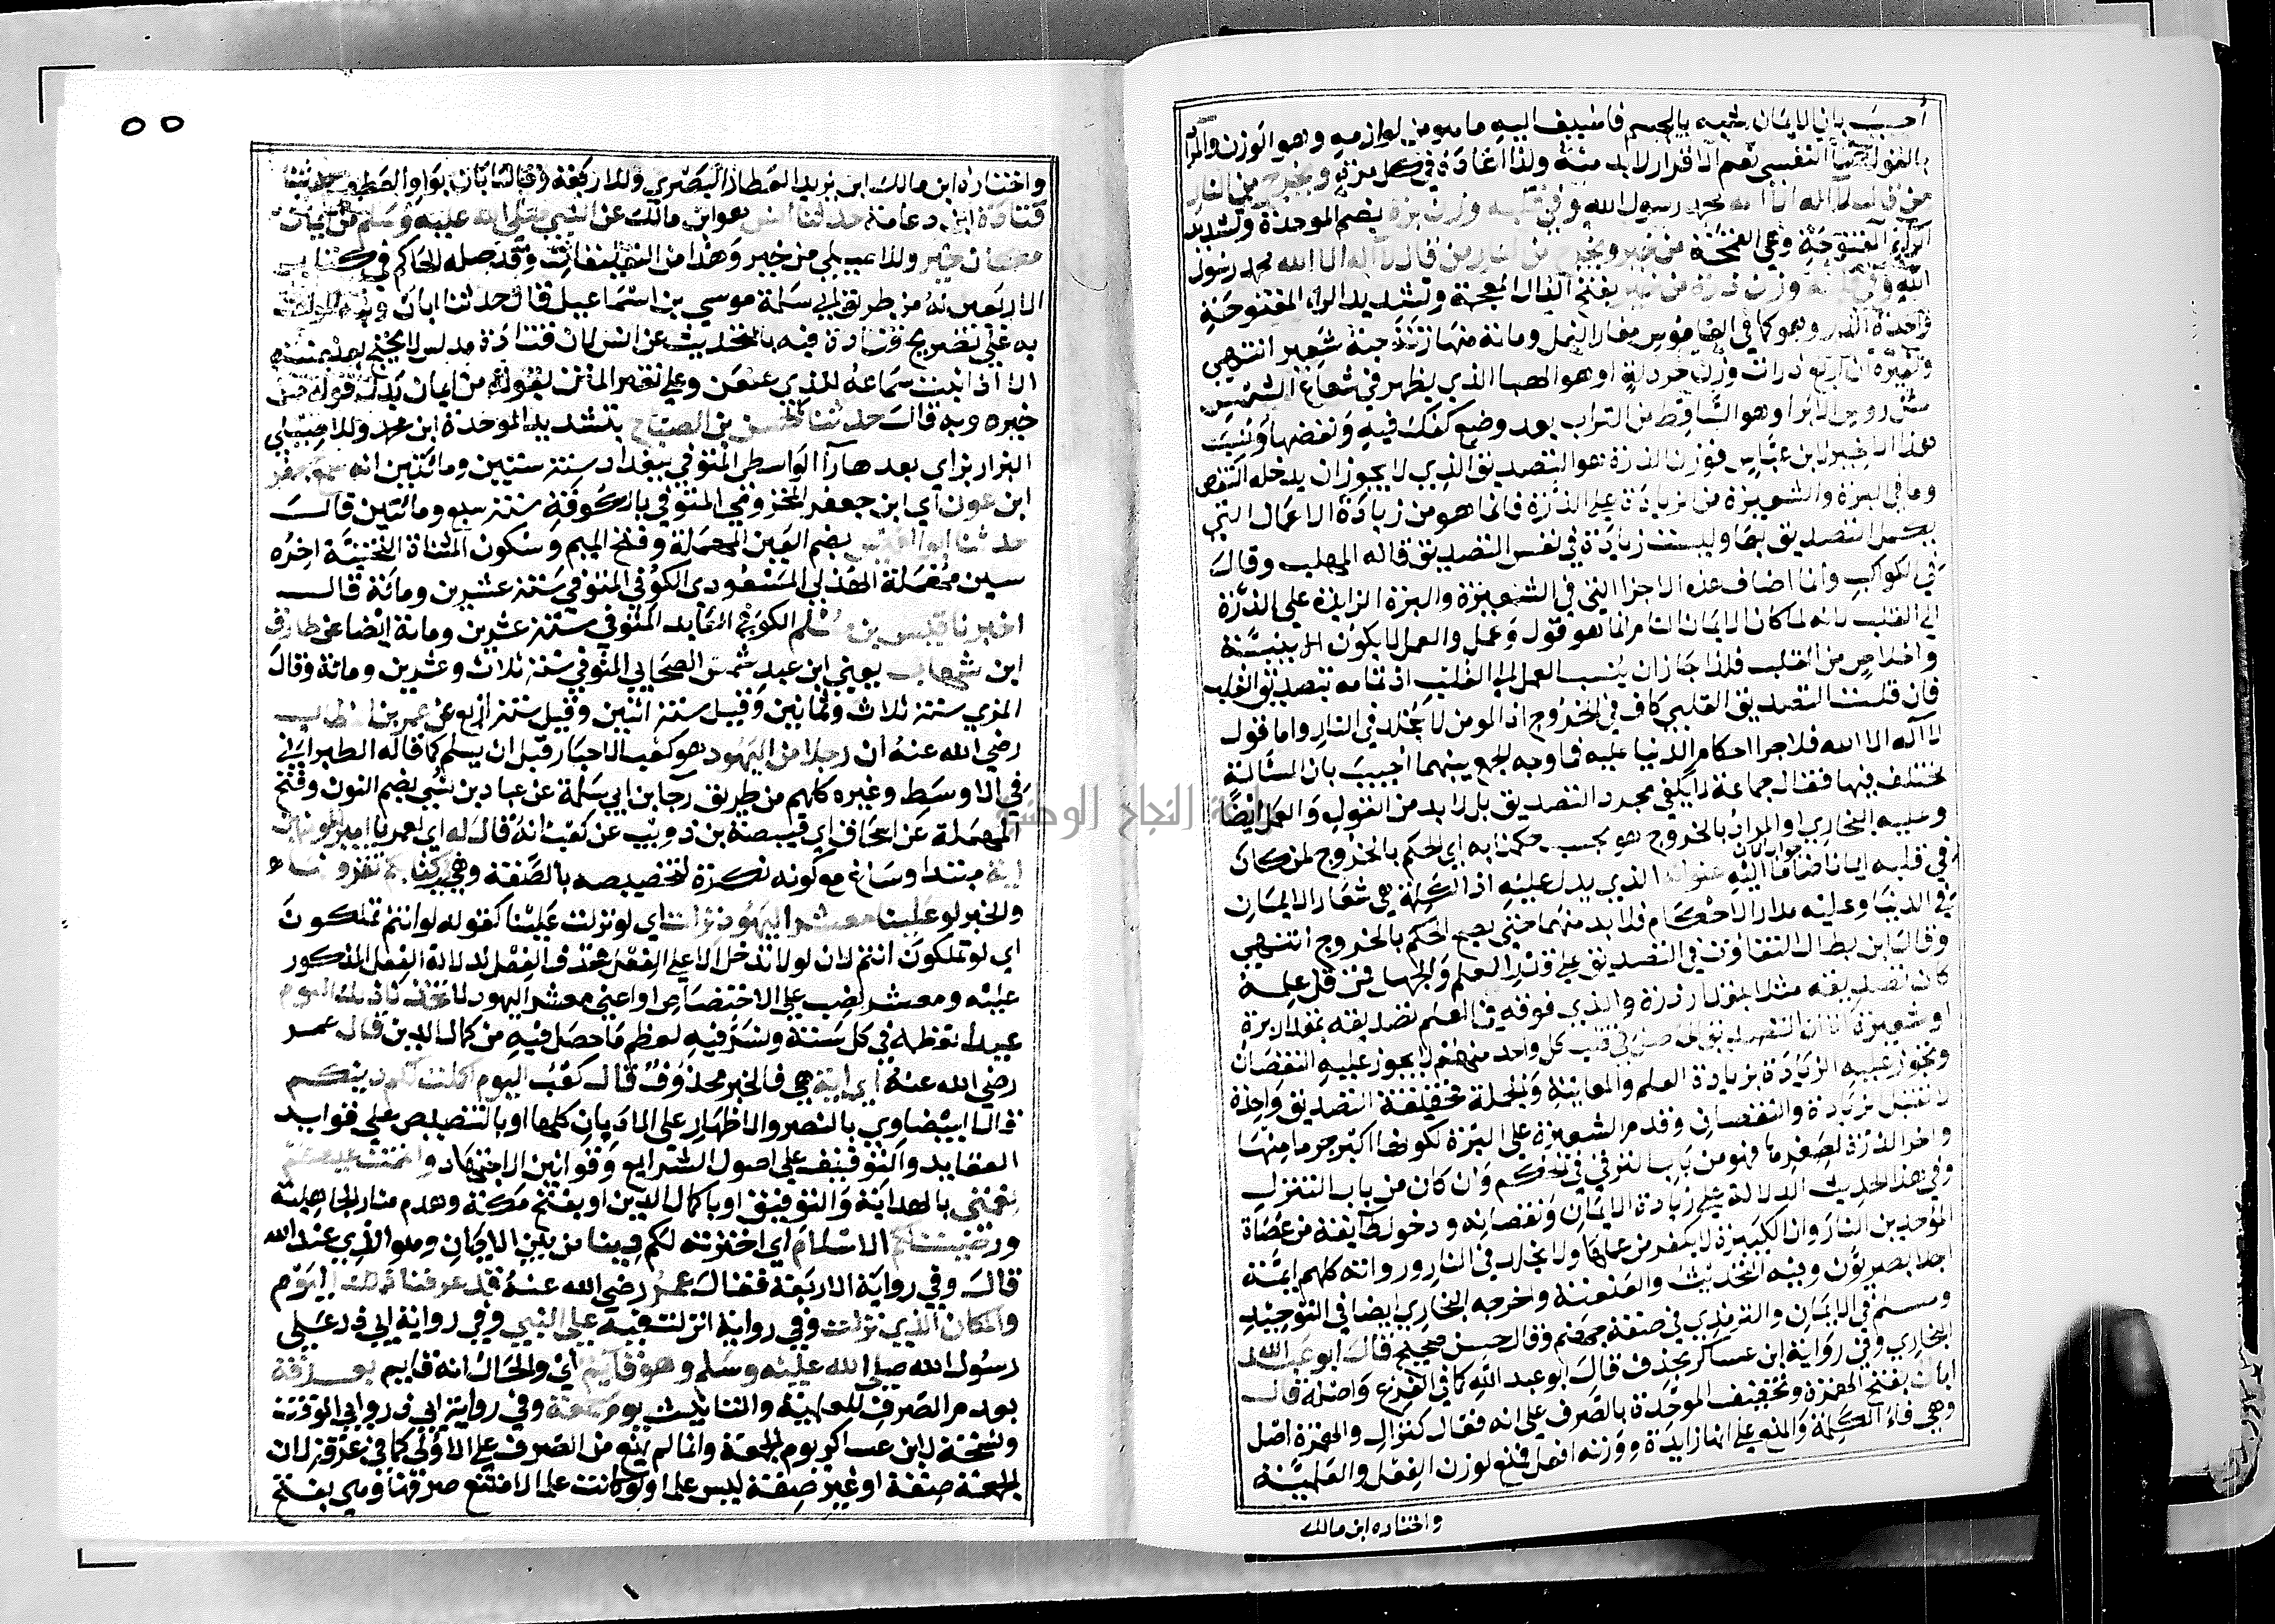 أجيب بان الايمان شبه بالجسم فاضيف اليه ما هو من لوازمه وهو الوزن والمراد
بالقول هنا النفسي نعم الاقرار لابد منه ولذا اعاده في كل مرة ويخرج من النار
من قال لا اله الا الله محمد رسول الله وفي قلبه وزن برة بضم الموحدة وتشديد
الراء المفتوحة وهي القمحة من خير ويخرج من النار من قال لا اله الا الله محمد رسول
الله وفي قلبه وزن ذرة من خير بفتح الذال المعجمة وتشديد الراء المفتوحة
واحدة الذر وهو كما في القاموس صغار النمل ومائة منها زنة حبة شعير انتهى
ولغيره ان اربع ذرات وزن خردلة او هو الهبا الذي يظهر في شعاع الشمس
مثل روس الابر او هو الساقط من التراب بعد وضع كفك فيه ونفضها ونسب
هذا الاخير لابن عباس فوزن الذرة هو التصديق الذي لا يجوز ان يدخله النقص
وما في البرة والشعيرة من الزيادة على الذرة فانما هو من زيادة الاعمال التي
يكمل التصديق بها وليست زيادة في نفس التصديق قاله المهلب وقال
في الكواكب وانما اضاف هذه الاجزا التي في الشعيرة والبرة الزايدة على الذرة
الى القلب لانه لما كان الايمان التام انما هو قول وعمل والعمل لا يكون الا بنية
واخلاص من القلب فلذا جاز ان ينسب العمل الى القلب اذ تمامه بتصديق القلب
فان قلت التصديق القلبي كاف في الخروج اذ المومن لا يخلد في النار واما قول
لا اله الا الله فلاجرا احكام الدنيا عليه فما وجه الجمع بينهما أجيب بان المسالة
مختلف فيها فقال جماعة لا يكفي مجرد التصديق بل لا بد من القول والعمل ايضا
وعليه البخاري او المراد بالخروج هو بحسب حكمنا به اي الحكم بالخروج لمن كان
في قلبه ايمان ضاما اليه عنوانه الذي يدل عليه اذ الكلمة هي شعار الايمان
في الدنيا وعليه مدار الاحكام فلا بد منهما حتى يصح الحكم بالخروج انتهى
وقال ابن بطال التفاوت في التصديق على قدر العلم والجهل فمن قل علمه
كان تصديقه مثلا بمقدار ذرة والذي فوقه في العلم تصديقه بمقدار برة
او شعيرة الا ان التصديق الحاصل في قلب كل واحد منهم لا يجوز عليه النقصان
ويجوز عليه الزيادة بزيادة العلم والمعاينة وبالجملة فحقيقة التصديق واحدة
لا تقبل الزيادة والنقصان وقدم الشعيرة على البرة لكونها اكبر جرما منها
واخر الذرة لصغرها فهو من باب الترقي في الحكم وان كان من باب التنزل
وفي هذا الحديث الدلالة على زيادة الايمان ونقصانه ودخول طايفة من عصاة
الموحدين النار وان الكبيرة لا يكفر من عملها ولا يخلد في النار ورواته كلهم ايمة
اجلا بصريون وفيه التحديث والعنعنة واخرجه البخاري ايضا في التوحيد
ومسلم في الايمان والترمذي في صفة جهنم وقال حسن صحيح قال ابو عبد الله
البخاري وفي رواية ابن عساكر بحذف قال ابو عبد الله كما في الفرع واصله قال
ابان بفتح الهمزة وتخفيف الموحدة بالصرف على انه فعال كغزال والهمزة اصل
وهي فاء الكلمة والمنع على انها زايدة ووزنه افعل فمنع لوزن الفعل والعلمية
واختاره ابن مالك
٥٥
واختاره ابن مالك ابن يزيد العطار البصري وللاربعة وقال ابان بواو العطف حدثنا
قتادة ابن دعامة حدثنا انس هو ابن مالك عن النبي صلى الله عليه وسلم من ايمان
مكان خير وللاصيلي من خير وهذا من التعليقات وقد وصله الحاكم في كتاب
الاربعين له من طريق ابي سلمة موسى بن اسماعيل قال حدثنا ابان
به على تصريح قتادة فيه بالتحديث عن انس لان قتادة مدلس لا يحتج بعنعنته
الا اذا ثبت سماعه للذي عنعن وعلى تفسير المتن بقوله من ايمان بدل قوله من
خير وبه قال حدثنا الحسن بن الصباح بتشديد الموحدة ابن محمد وللاصيلي
البزار بزاي بعدها راء الواسطي المتوفي ببغداد سنة ستين ومائتين انه سمع جعفر
ابن عون اي ابن جعفر المخزومي المتوفي بالكوفة سنة سبع ومائتين قال
حدثنا ابو العميس بضم العين المهملة وفتح الميم وسكون المثناة التحتية اخره
سين مهملة الهذلي المسعودي الكوفي المتوفي سنة عشرين ومائة قال
اخبرنا قيس بن مسلم الكوفي العابد المتوفي سنة عشرين ومائة ايضا عن طارق
ابن شهاب يعني ابن عبد شمس الصحابي المتوفي سنة ثلاث وعشرين ومائة وقال
المزي سنة ثلاث وثمانين وقيل سنة اثنين وقيل سنة اربع عن عمر بن الخطاب
رضي الله عنه ان رجلا من اليهود هو كعب الاحبار قبل ان يسلم كما قاله الطبراني
في الاوسط وغيره كلهم من طريق رجا بن ابي سلمة عن عباد بن نسي بضم النون وفتح
المهملة عن اسحاق اي قبيصة بن ذويب عن كعب انه قال له اي لعمر يا امير المومنين
اية مبتدا وساغ مع كونه نكرة لتخصيصه بالصفة وهي في كتابكم تقرونها
والخبر لو علينا معشر اليهود نزلت اي لو نزلت علينا كقوله لو انتم تملكون
اي لو تملكون انتم لان لو لا تدخل الا على الفعل فحذف الفعل لدلالة الفعل المذكور
عليه ومعشر نصب على الاختصاص او اعني معشر اليهود لاتخذنا ذلك اليوم
عيدا نعظمه في كل سنة ونسر فيه لعظم ما حصل فيه من كمال الدين قال عمر
رضي الله عنه اي اية هي فالخبر محذوف قال كعب اليوم اكملت لكم دينكم
قال البيضاوي بالنصر والاظهار على الاديان كلها او بالتنصيص على قواعد
العقايد والتوقيف على اصول الشرايع وقوانين الاجتهاد واتممت عليكم
نعمتي بالهداية والتوفيق او باكمال الدين او بفتح مكة وهدم منار الجاهلية
ورضيت لكم الاسلام اي اخترته لكم دينا من بين الاديان وهو الذي عند الله
قال وفي رواية الاربعة فقال عمر رضي الله عنه قد عرفنا ذلك اليوم
والمكان الذي نزلت وفي رواية انزلت فيه على النبي وفي رواية ابي ذر على
رسول الله صلى الله عليه وسلم وهو قايم اي والحال انه قايم بعرفة
بعدم الصرف للعلمية والتانيث يوم جمعة وفي رواية ابي ذر وابي الوقت
ونسخة لابن عساكر يوم الجمعة وانما لم يمنع من الصرف على الاولى كما في عرفة لان
الجمعة صفة او غير صفة ليس علما ولو كانت علما لامتنع صرفها وهي بفتح
رابطة النجاح الوطنية